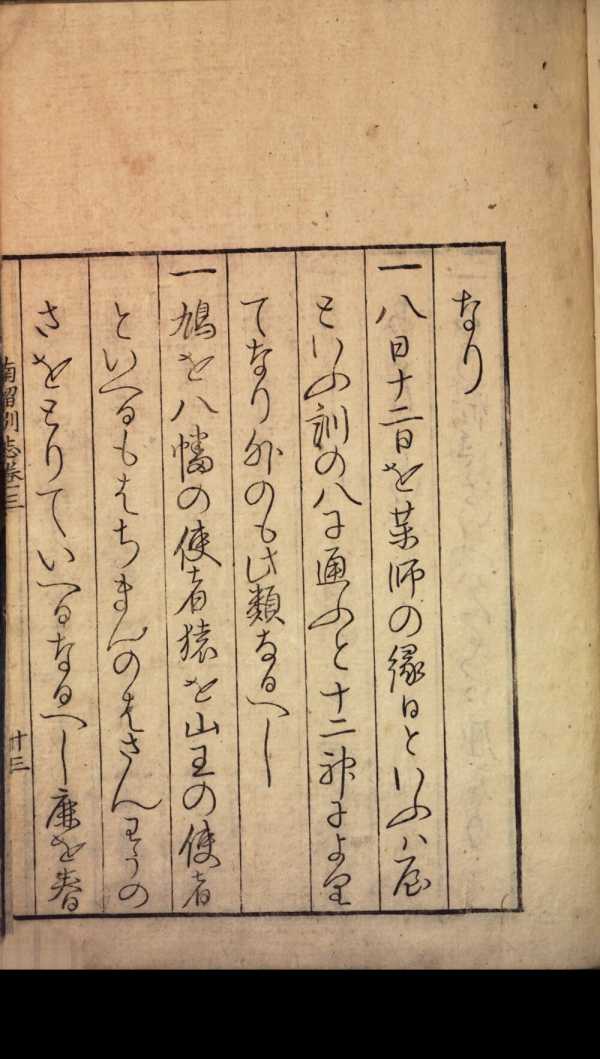 なり
一八日十二日を薬師の縁日といふハ屋
といふ訓の八に通ふと十二神により
てなり外のも此類なるへし
一鳩を八幡の使者猿を山王の使者
といへるもはちまんのはさんわうの
さをとりていへるなるへし鹿を春
南留別志巻三
十三